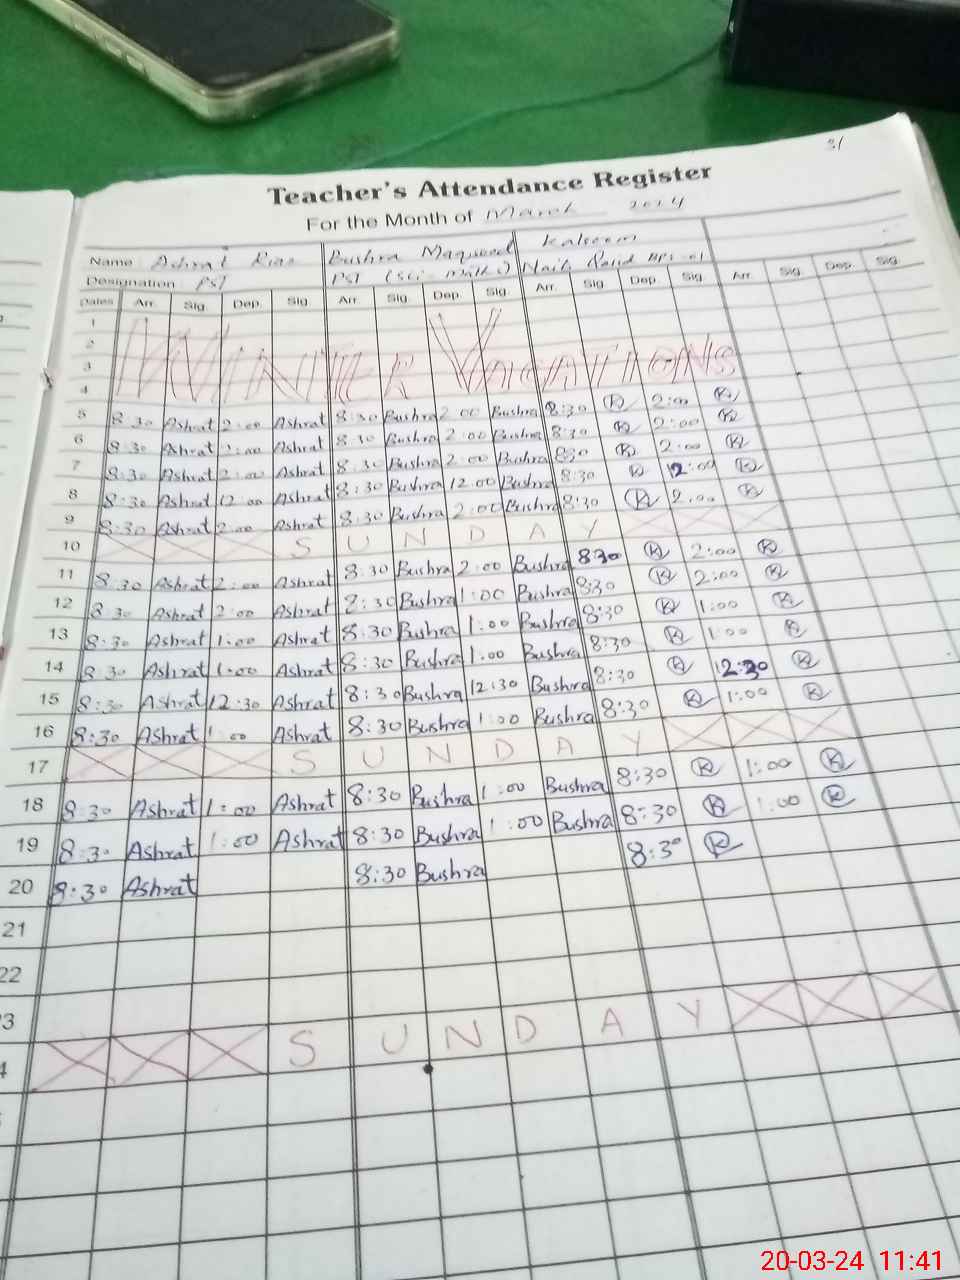 31
Teacher's Attendance Register
For the Month of March 2024
Name Ashrat Riaz Bushra Maqsood Kaleem
Designation PST PST (Sci-Math) Naib Qasid BPS-01
Dates Arr. Sig. Dep. Sig. Arr. Sig. Dep. Sig. Arr. Sig. Dep. Sig. Arr. Sig. Dep. Sig.
1
2
3 WINTER VACATIONS
4
5 8:30 Ashrat 2:00 Ashrat 8:30 Bushra 2:00 Bushra 8:30 K 2:00 K
6 8:30 Ashrat 2:00 Ashrat 8:30 Bushra 2:00 Bushra 8:30 K 2:00 K
7 8:30 Ashrat 2:00 Ashrat 8:30 Bushra 2:00 Bushra 8:30 K 2:00 K
8 8:30 Ashrat 12:00 Ashrat 8:30 Bushra 12:00 Bushra 8:30 K 12:00 K
9 8:30 Ashrat 2:00 Ashrat 8:30 Bushra 2:00 Bushra 8:30 K 2:00 K
10 SUNDAY
11 8:30 Ashrat 2:00 Ashrat 8:30 Bushra 2:00 Bushra 8:30 K 2:00 K
12 8:30 Ashrat 2:00 Ashrat 8:30 Bushra 1:00 Bushra 8:30 K 2:00 K
13 8:30 Ashrat 1:00 Ashrat 8:30 Bushra 1:00 Bushra 8:30 K 1:00 K
14 8:30 Ashrat 1:00 Ashrat 8:30 Bushra 1:00 Bushra 8:30 K 1:00 K
15 8:30 Ashrat 12:30 Ashrat 8:30 Bushra 12:30 Bushra 8:30 K 12:30 K
16 8:30 Ashrat 1:00 Ashrat 8:30 Bushra 1:00 Bushra 8:30 K 1:00 K
17 SUNDAY
18 8:30 Ashrat 1:00 Ashrat 8:30 Bushra 1:00 Bushra 8:30 K 1:00 K
19 8:30 Ashrat 1:00 Ashrat 8:30 Bushra 1:00 Bushra 8:30 K 1:00 K
20 8:30 Ashrat 8:30 Bushra 8:30 K
21
22
3
4 SUNDAY
20-03-24 11:41